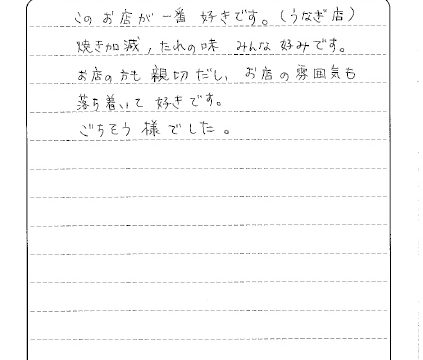 このお店が一番好きです。(うなぎ店)
焼き加減,たれの味みんな好みです。
お店の方も親切だし、お店の雰囲気も
落ち着いて好きです。
ごちそう様でした。